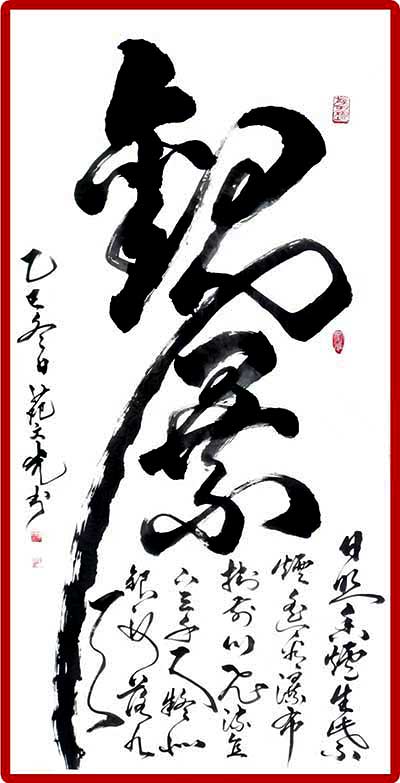 銀瀑
日照香爐生紫
煙遙看瀑布
掛前川飛流直
下三千尺疑似
銀河落九
天
乙巳冬日范文光书